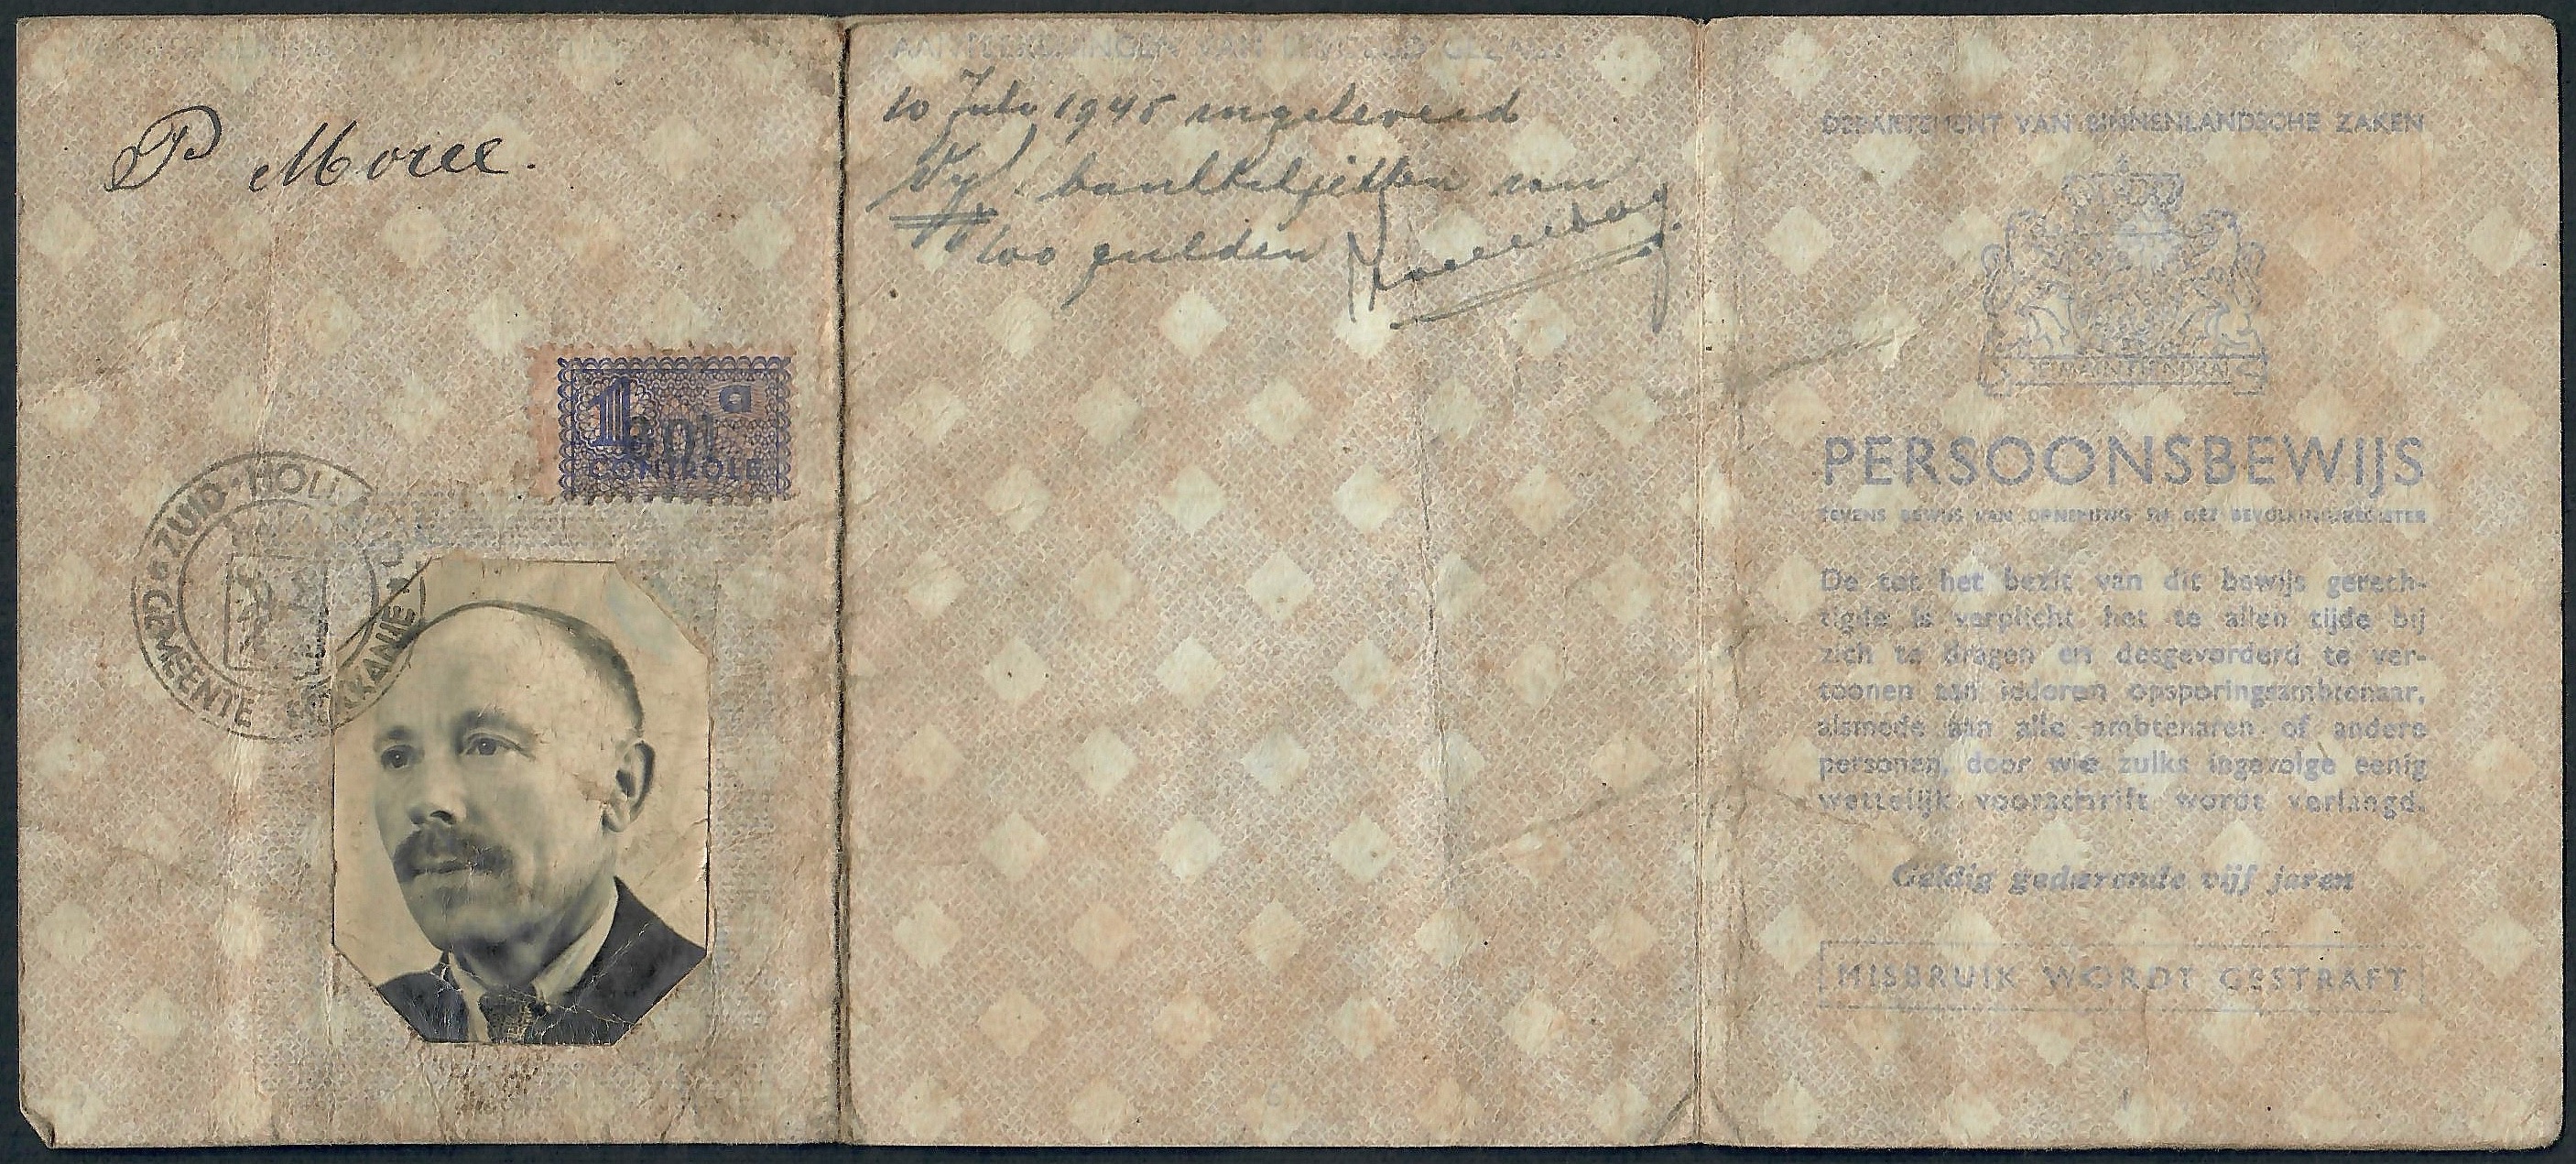 P Moree.
1 a
CONTROLE
GEMEENTE ROKKANJE
ZUID-HOLLAND
AANTEEKENINGEN VAN BEVOEGD GEZAG
10 July 1945 ingeleverd
Vyf bankbiljetten van
100 gulden
6
DEPARTEMENT VAN BINNENLANDSCHE ZAKEN
JE MAINTIENDRAI
PERSOONSBEWIJS
TEVENS BEWIJS VAN OPNEMING IN HET BEVOLKINGSREGISTER
De tot het bezit van dit bewijs gerech-
tigde is verplicht het te allen tijde bij
zich te dragen en desgevorderd te ver-
toonen aan iederen opsporingsambtenaar,
alsmede aan alle ambtenaren of andere
personen, door wie zulks ingevolge eenig
wettelijk voorschrift wordt verlangd.
Geldig gedurende vijf jaren
MISBRUIK WORDT GESTRAFT